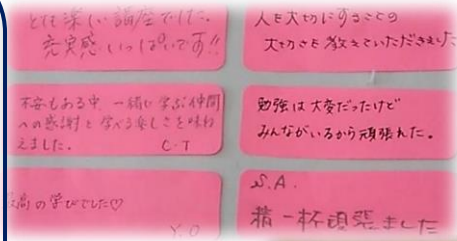 とても楽しい講座でした。
充実感いっぱいです!!
人を大切にすることの
大切さを教えていただきました
不安もある中、一緒に学ぶ仲間
への感謝と学べる楽しさを味わ
えました。
C.T
勉強は大変だったけど
みんながいるから頑張れた。
最高の学びでした♡
Y.O
S.A.
精一杯頑張ました